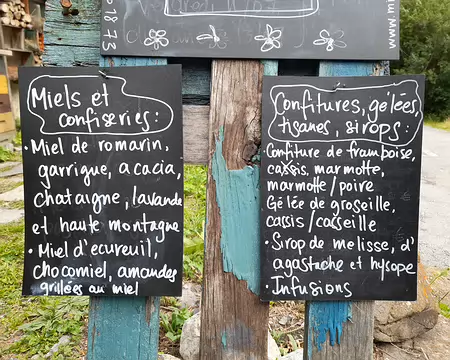 18 73
www.m
Miels et
confiseries :
• Miel de romarin,
garrigue, acacia,
chataigne, lavande
et haute montagne
• Miel d'ecureuil,
chocomiel, amandes
grillées au miel
Confitures, gélées,
tisanes, sirops :
Confiture de framboise,
cassis, marmotte,
marmotte/poire
Gélée de groseille,
cassis/casseille
• Sirop de melisse, d'
agastache et hysope
• Infusions